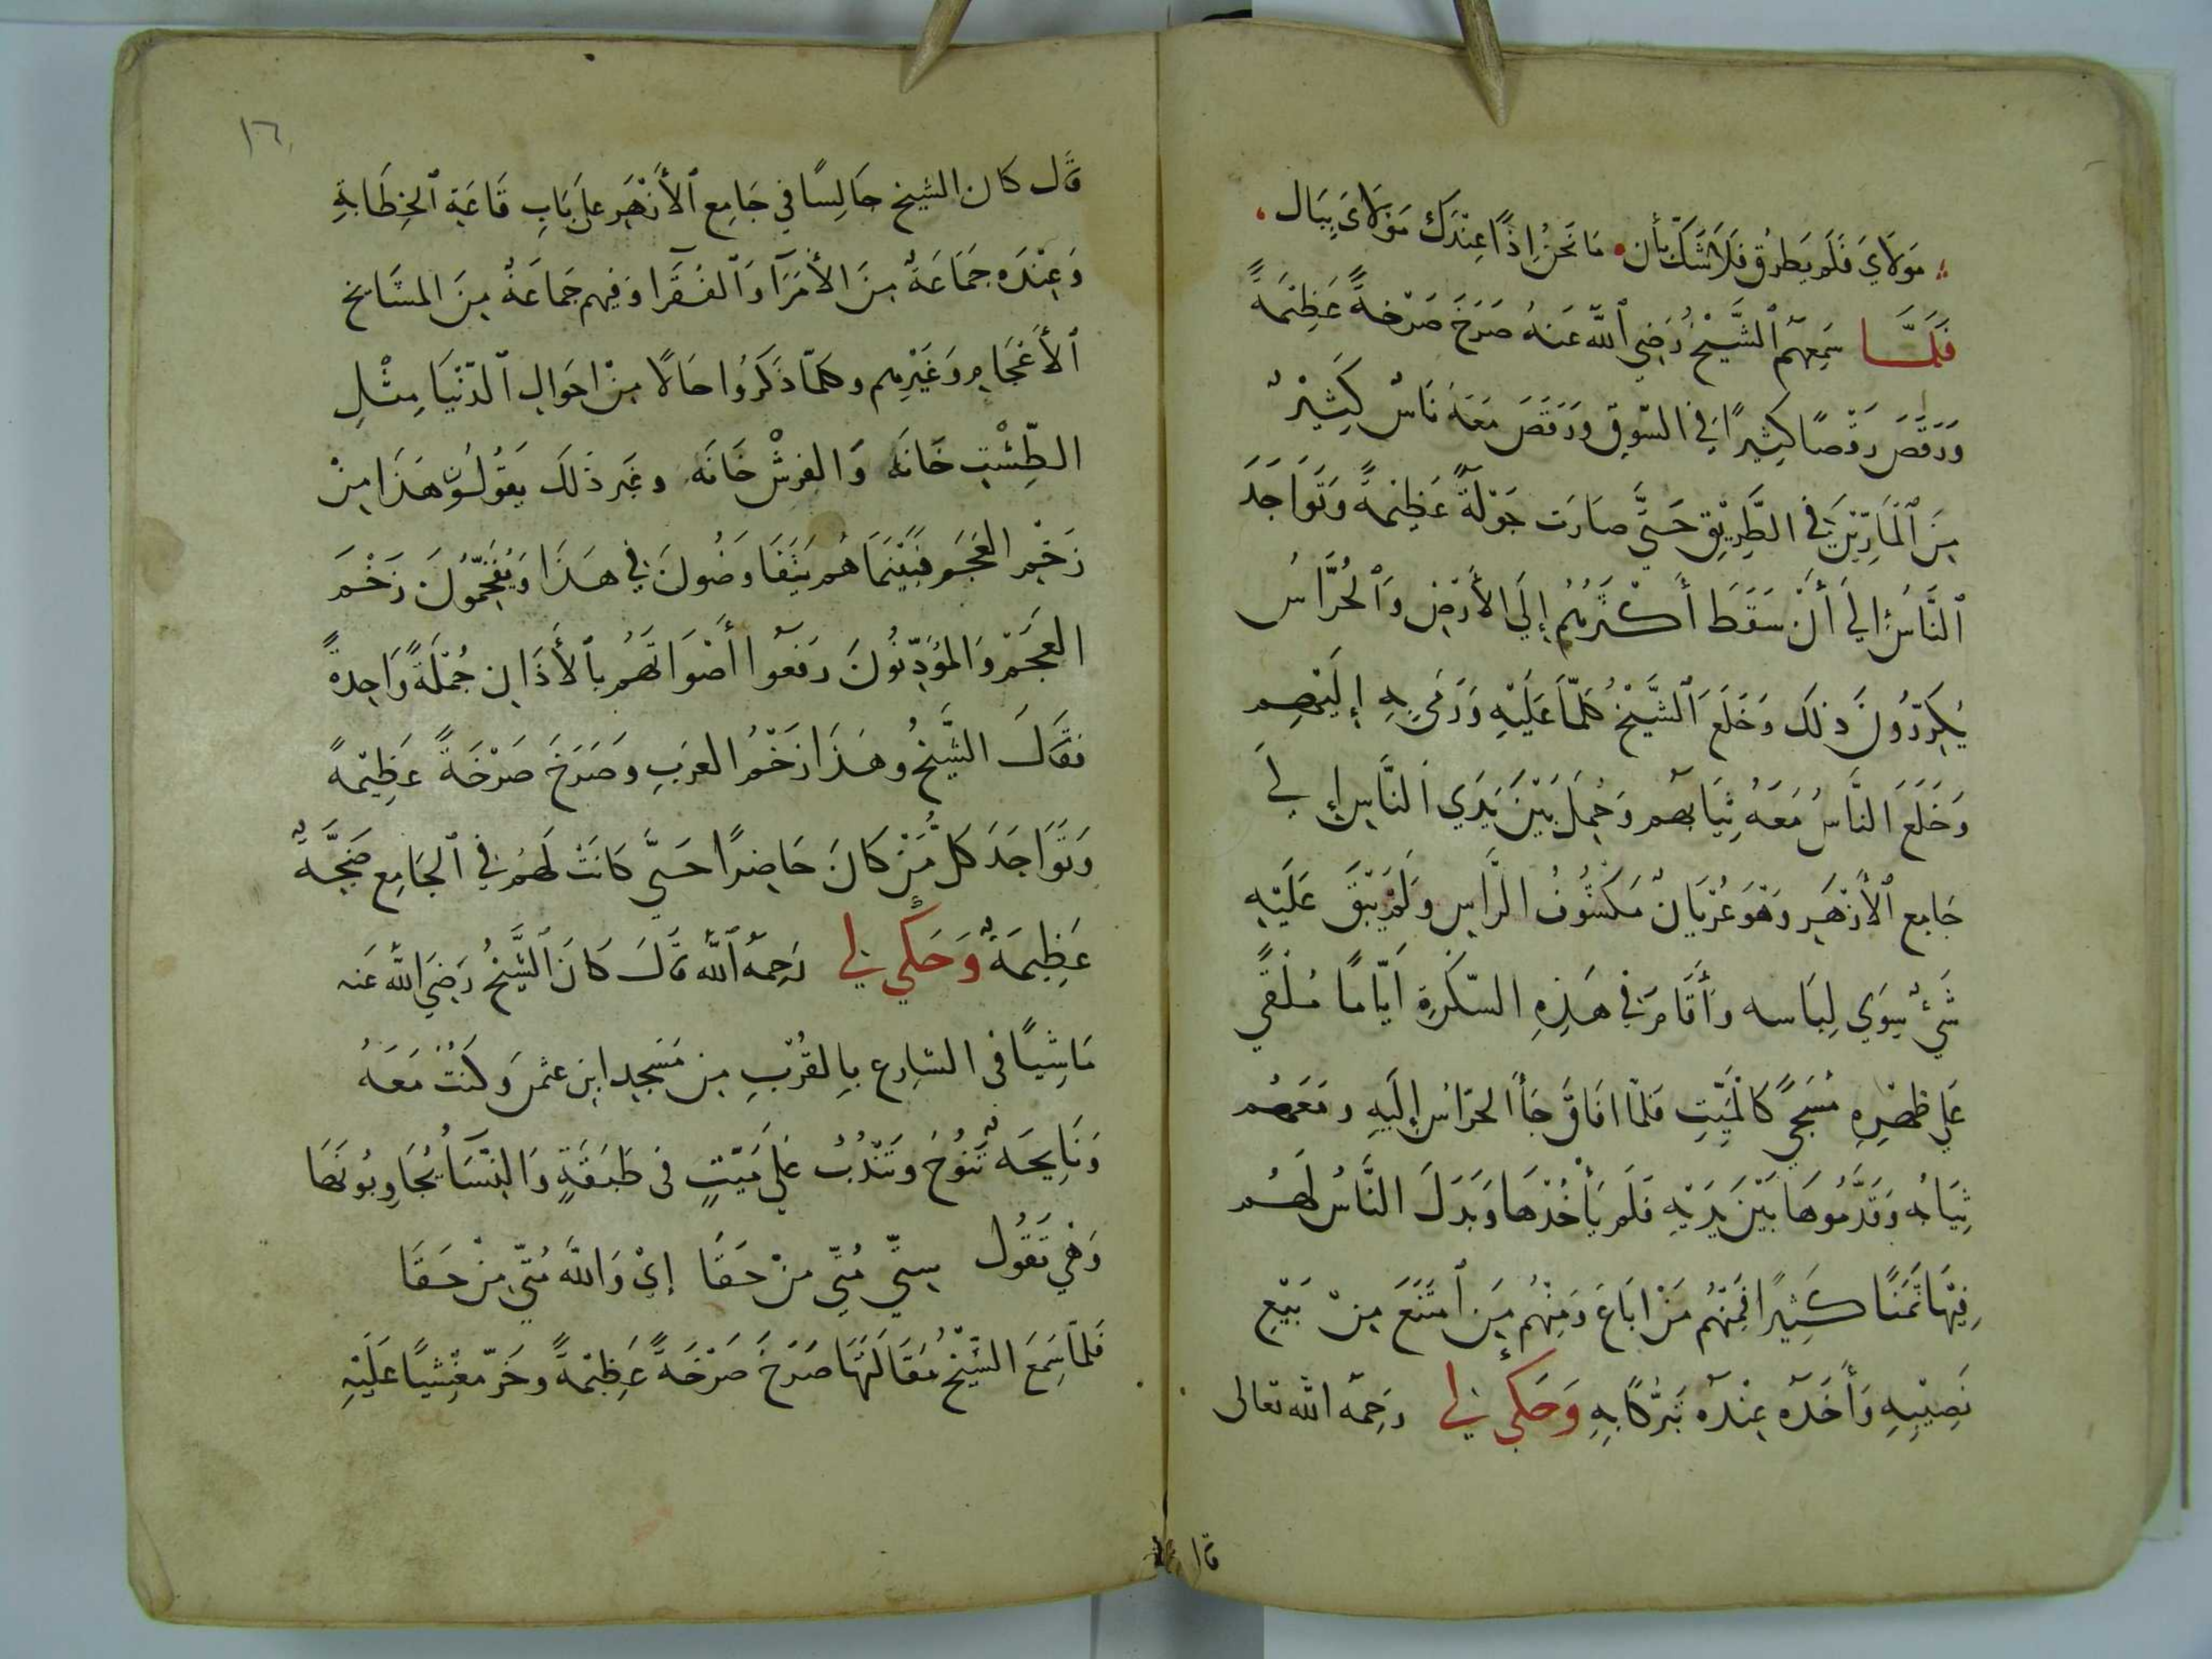 مَولَايَ فَلَم يَطرُق فَلَا شَكَّ بأن • مَا نَحنُ إذًا عِنْدَكَ مَوْلَايَ بِبَال
فَلَمَّا سَمِعهُم ٱلشَّيْخُ رَضِي ٱللَّه عَنهُ صَرَخَ صَرْخةً عَظِيْمَةً
وَرَقَصَ رَقْصًا كثِيرًا فِي السّوقِ وَرَقَصَ مَعَهُ نَاسٌ كَثِيْرٌ
مِنَ ٱلْمَارِّيْنَ فِي الطَّرِيْقِ حَتَّى صَارَت جَوْلَةً عَظِيمةً وَتَوَاجَدَ
ٱلنَّاسُ إلَى أَنْ سَقَطَ أَكْثَرُهُم إلَي الأَرْضِ وَٱلحُرَّاسُ
يُكَرِّرُونَ ذلك وَخَلَعَ ٱلشَّيْخُ كُلّمَا عَلَيْهِ وَرَمَي بِهِ إِلَيْهِم
وَخَلَعَ النَّاسُ مَعَهُ ثِيَابهُم وَحُمِلَ بَيْنَ يَدَي النَّاسِ إلي
جَامع ٱلأَزْهَرِ وَهْوَ عُرْيَانٌ مَكشُوفُ الرَّاسِ وَلَمْ يَبْقَ عَلَيْهِ
شَيْءٌ سِوَي لِبَاسه وَأَقَامَ فِي هَذِهِ السّكرَةِ أيّامًا مُلقًي
عَلي ظهْرِهِ مُسَجًّي كَالمَيِّتِ فلمّا افَاقَ جَأَ الحرّاسُ إلَيهِ وَمَعَهُم
ثِيَابُه وَقَدَّمُوهَا بَيْنَ يَدَيْهِ فَلَم يَأْخُذْهَا وَبَذَلَ النَّاسُ لَهُم
فِيْهَا ثَمَنًا كَثِيرًا فَمِنْهُم مَنْ ابَاعَ وَمِنْهُم مَنِ ٱمتَنَعَ مِنْ بَيْعِ
نَصِيْبِهِ وَأَخَذَهُ عِنْدَهُ تَبَرُّكًا بِهِ وَحَكَي لي رَحِمَهُ اللّه تعالى
قال
١٦
قال كان الشيخ جَالِسًا في جَامِعِ ٱلأَزْهَرِ عَلَى بَابِ قَاعَةِ ٱلخِطَابَةِ
وَعِنْدَه جَمَاعَةٌ مِنَ الأُمَرَآ وَٱلفُقَرَا وَفيهم جَمَاعَةٌ مِنَ المشَايخ
ٱلأَعْجَامِ وَغَيْرِهم وكلمّا ذَكَرُوا حَالًا مِنْ احوَالِ ٱلدّنْيَا مِثْلِ
الطِّشْتِ خَانَه وَالفرشْ خَانَه وغير ذَلكَ يَقُولُونَ هَذَا مِنْ
زَخْمِ العَجَم فبَيْنَمَا هُم يَتَفَاوَضُونَ فِي هَذَا وَيُفَخِّمُونَ زَخْمَ
العَجَمِ وَالمُؤَذِّنُونَ رفعُوا أَصْوَاتَهُم بالأَذَانِ جُمْلَةً وَاحِدةً
فقَالَ الشَّيْخُ وهَذَا زَخْمُ العرَبِ وصَرَخَ صَرْخَةً عَظِيْمةً
وَتَوَاجَدَ كلُّ مَنْ كَانَ حَاضِرًا حَتَّي كَانَتْ لَهُم فِي ٱلجَامِع ضَجَّةٌ
عَظِيمَةٌ وَحَكَي لي رَحِمهُ ٱللَّه قَالَ كَانَ ٱلشَّيْخُ رَضِيَ اللَّه عَنه
مَاشِيًا فى الشارِع بِالقُرْبِ مِن مَسْجِدِ ابنِ عثمَرَ وَكُنْتُ مَعَهُ
وَنَايحَةٌ تَنُوحُ وتَنْدُبُ عَلَي مَيّتٍ فى طَبَقَةٍ وَالنِّسَأُ يُجَاوِبُونَهَا
وَهْيَ تَقُول سِتّي مُتِّي مِنْ حَقَّا إيْ وَاللَّه مُتّي مِنْ حَقَّا
فَلمّا سَمعَ الشيْخُ مَقَالَتَهَا صَرَخَ صَرْخَةً عَظِيْمَةً وخَرَّ مغْشِيًا عَلَيْهِ